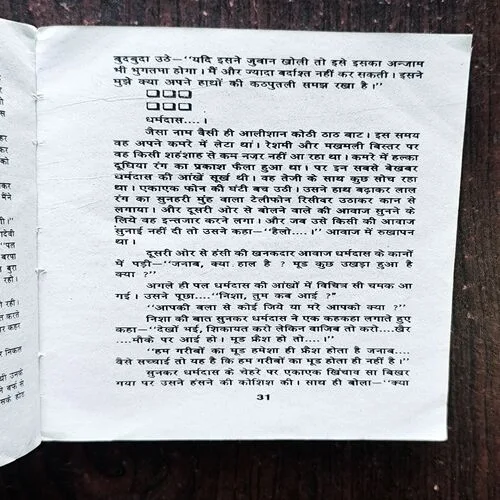 बुदबुदा उठे—‘‘यदि इसने जुबान खोली तो इसे इसका अन्जाम
भी भुगतमा होगा। मैं और ज्यादा बर्दाश्त नहीं कर सकती। इसने
मुझे क्या अपने हाथों की कठपुतली समझ रखा है।’’
धर्मदास....।
जैसा नाम वैसी ही आलीशान कोठी ठाठ बाट। इस समय
वह अपने कमरे में लेटा था। रेशमी और मखमली बिस्तर पर
वह किसी शहंशाह से कम नजर नहीं आ रहा था। कमरे में हल्का
दूधिया रंग का प्रकाश फैला हुआ था। पर इन सबसे बेखबर
धर्मदास की आंखें सुर्ख थी। वह तेजी के साथ कुछ सोच रहा
था। एकाएक फोन की घंटी बच उठी। उसने हाथ बढ़ाकर लाल
रंग का सुनहरी मुंह वाला टेलीफोन रिसीवर उठाकर कान से
लगाया। और दूसरी ओर से बोलने वाले की आवाज सुनने के
लिये वह इन्तजार करने लगा। और जब उसे किसी की आवाज
सुनाई नहीं दी तो उसने कहा—‘‘हैलो....।’’ आवाज में रुखापन
था।
दूसरी ओर से हंसी की खनकदार आवाज धर्मदास के कानों
में पड़ी—‘‘जनाब, क्या हाल है ? मूड कुछ उखड़ा हुआ है
क्या ?’’
अगले ही पल धर्मदास की आंखों में विचित्र सी चमक आ
गई। उसने पूछा....‘‘निशा, तुम कब आईं ?’’
‘‘आपकी बला से कोई जिये या मरे आपको क्या ?’’
निशा की बात सुनकर धर्मदास ने एक कहकहा लगाते हुए
कहा—‘‘देखों भई, शिकायत करो लेकिन वाजिब तो करो....खैर
....मौके पर आई हो। मूड फ्रैश हो तो....।’’
‘‘हम गरीबों का मूड हमेशा ही फ्रैश होता है जनाब....
वैसे सच्चाई तो यह है कि हम गरीबों का मूड होता ही नहीं है।’’
सुनकर धर्मदास के चेहरे पर एकाएक खिंचाव सा बिखर
गया पर उसने हंसने की कोशिश की। साथ ही बोला—‘‘क्या
31